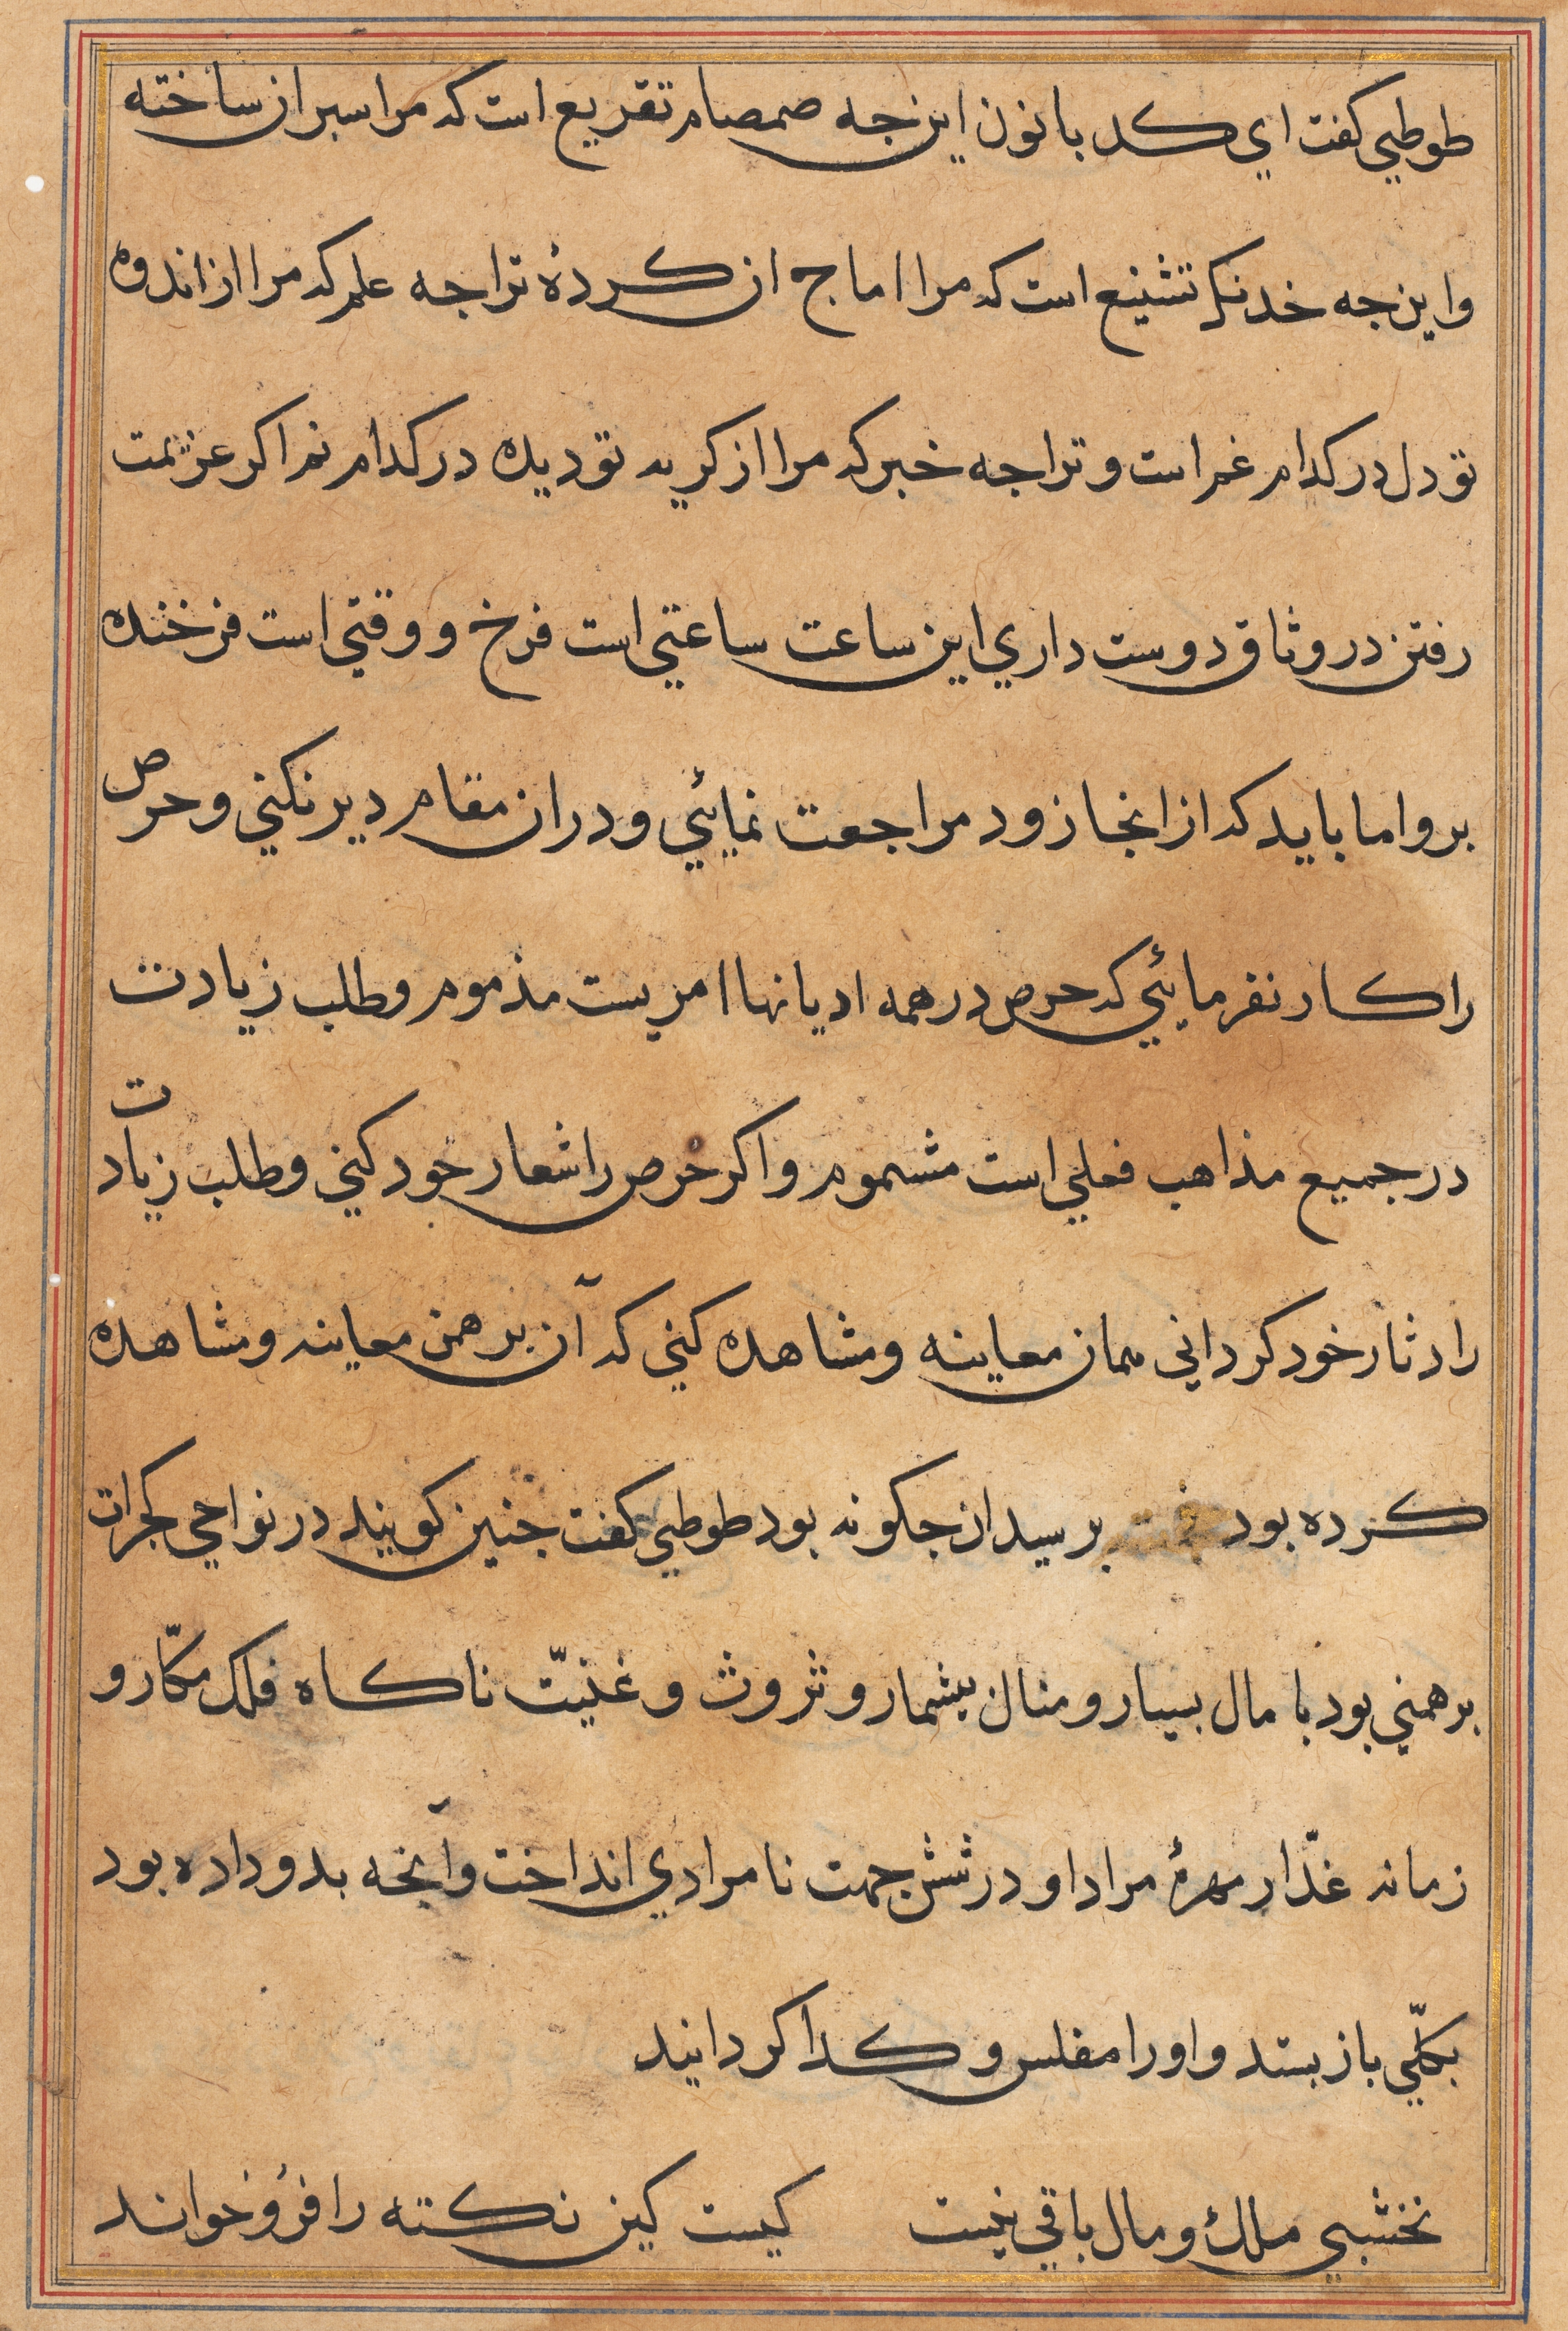 طوطي كفت اي كد بانون اين جه صمصام تقريع است كه مرا سبر ان ساخته
و اين جه خدنك تشنيع است كه مرا اماج ان كردهٔ ترا جه علم كه مرا از اندوه
تو دل در كدام غم است و ترا جه خبر كه مرا از كريه تو ديده در كدام نم اكر عزيمت
رفتن در وثاق دوست داري اين ساعت ساعتي است فرخ و وقتي است فرخنده
برو اما بايد كه از انجا زود مراجعت نمايئي و در ان مقام دير نكني و حرص
را كار نفرمايئي كه حرص در همه اديانها امريست مذموم و طلب زيادت
در جميع مذاهب فعلي است مشموم و اكر حرص را شعار خود كني و طلب زيادت
را دثار خود كرداني همان معاينه و مشاهده كني كه آن برهمن معاينه و مشاهده
كرده بود برسيد ان جكونه بود طوطي كفت جنين كويند در نواحي كجرات
برهمني بود با مال بسيار و منال بيشمار و ثروت و غنيّت ناكاه فلك مكّار و
زمانه غدّار مهرهٔ مراد او در شش جهت نامرادي انداخت و آنجه بدو داده بود
بكلّي باز بستد و او را مفلس و كدا كردانيد
نخشبي ملك و مال باقي نيست كيست كين نكته را فرو خواند